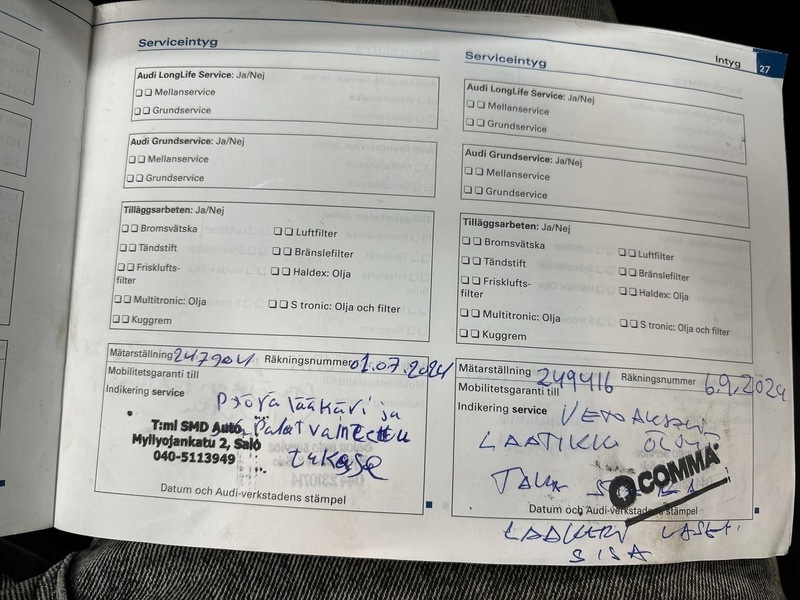 Serviceintyg
Audi LongLife Service: Ja/Nej
Mellanservice
Grundservice
Audi Grundservice: Ja/Nej
Mellanservice
Grundservice
Tilläggsarbeten: Ja/Nej
Bromsvätska
Luftfilter
Tändstift
Bränslefilter
Frisklufts-
filter
Haldex: Olja
Multitronic: Olja
S tronic: Olja och filter
Kuggrem
Mätarställning 247904 Räkningsnummer 01.07.2024
Mobilitetsgaranti till
Indikering service
ja
T:mi SMD Auto
Myllyojankatu 2, Salo
040-5113949
Datum och Audi-verkstadens stämpel
Serviceintyg
Intyg
27
Audi LongLife Service: Ja/Nej
Mellanservice
Grundservice
Audi Grundservice: Ja/Nej
Mellanservice
Grundservice
Tilläggsarbeten: Ja/Nej
Bromsvätska
Luftfilter
Tändstift
Bränslefilter
Frisklufts-
filter
Haldex: Olja
Multitronic: Olja
S tronic: Olja och filter
Kuggrem
Mätarställning 249416 Räkningsnummer 6.9.2024
Mobilitetsgaranti till
Indikering service
LAATIKKO
TAKA
COMMA
Datum och Audi-verkstadens stämpel